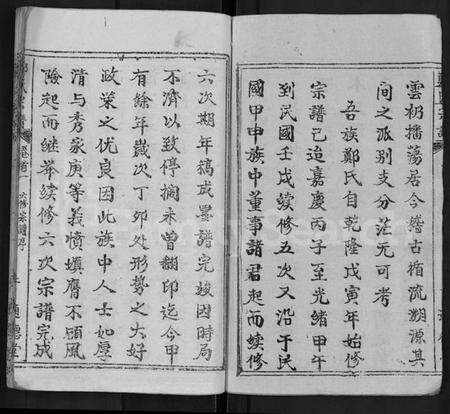 雲礽播蕩居今稽古循流溯源其
間之派別支分茫无可考
吾族鄭氏自乾隆戊寅年始修
宗譜已迨嘉慶丙子至光緒甲午
到民國壬戌續修五次又沿于民
國甲申族中董事諸君起而續修
六次期年稿成墨譜完竣因時局
不濟以致停擱未曾翻印迄今甲
有餘年歲次丁卯处形勢之大好
政策之优良因此族中人士如厚
清与秀家庚等義憤填膺不顧風
險起而継葬續修六次宗譜完成